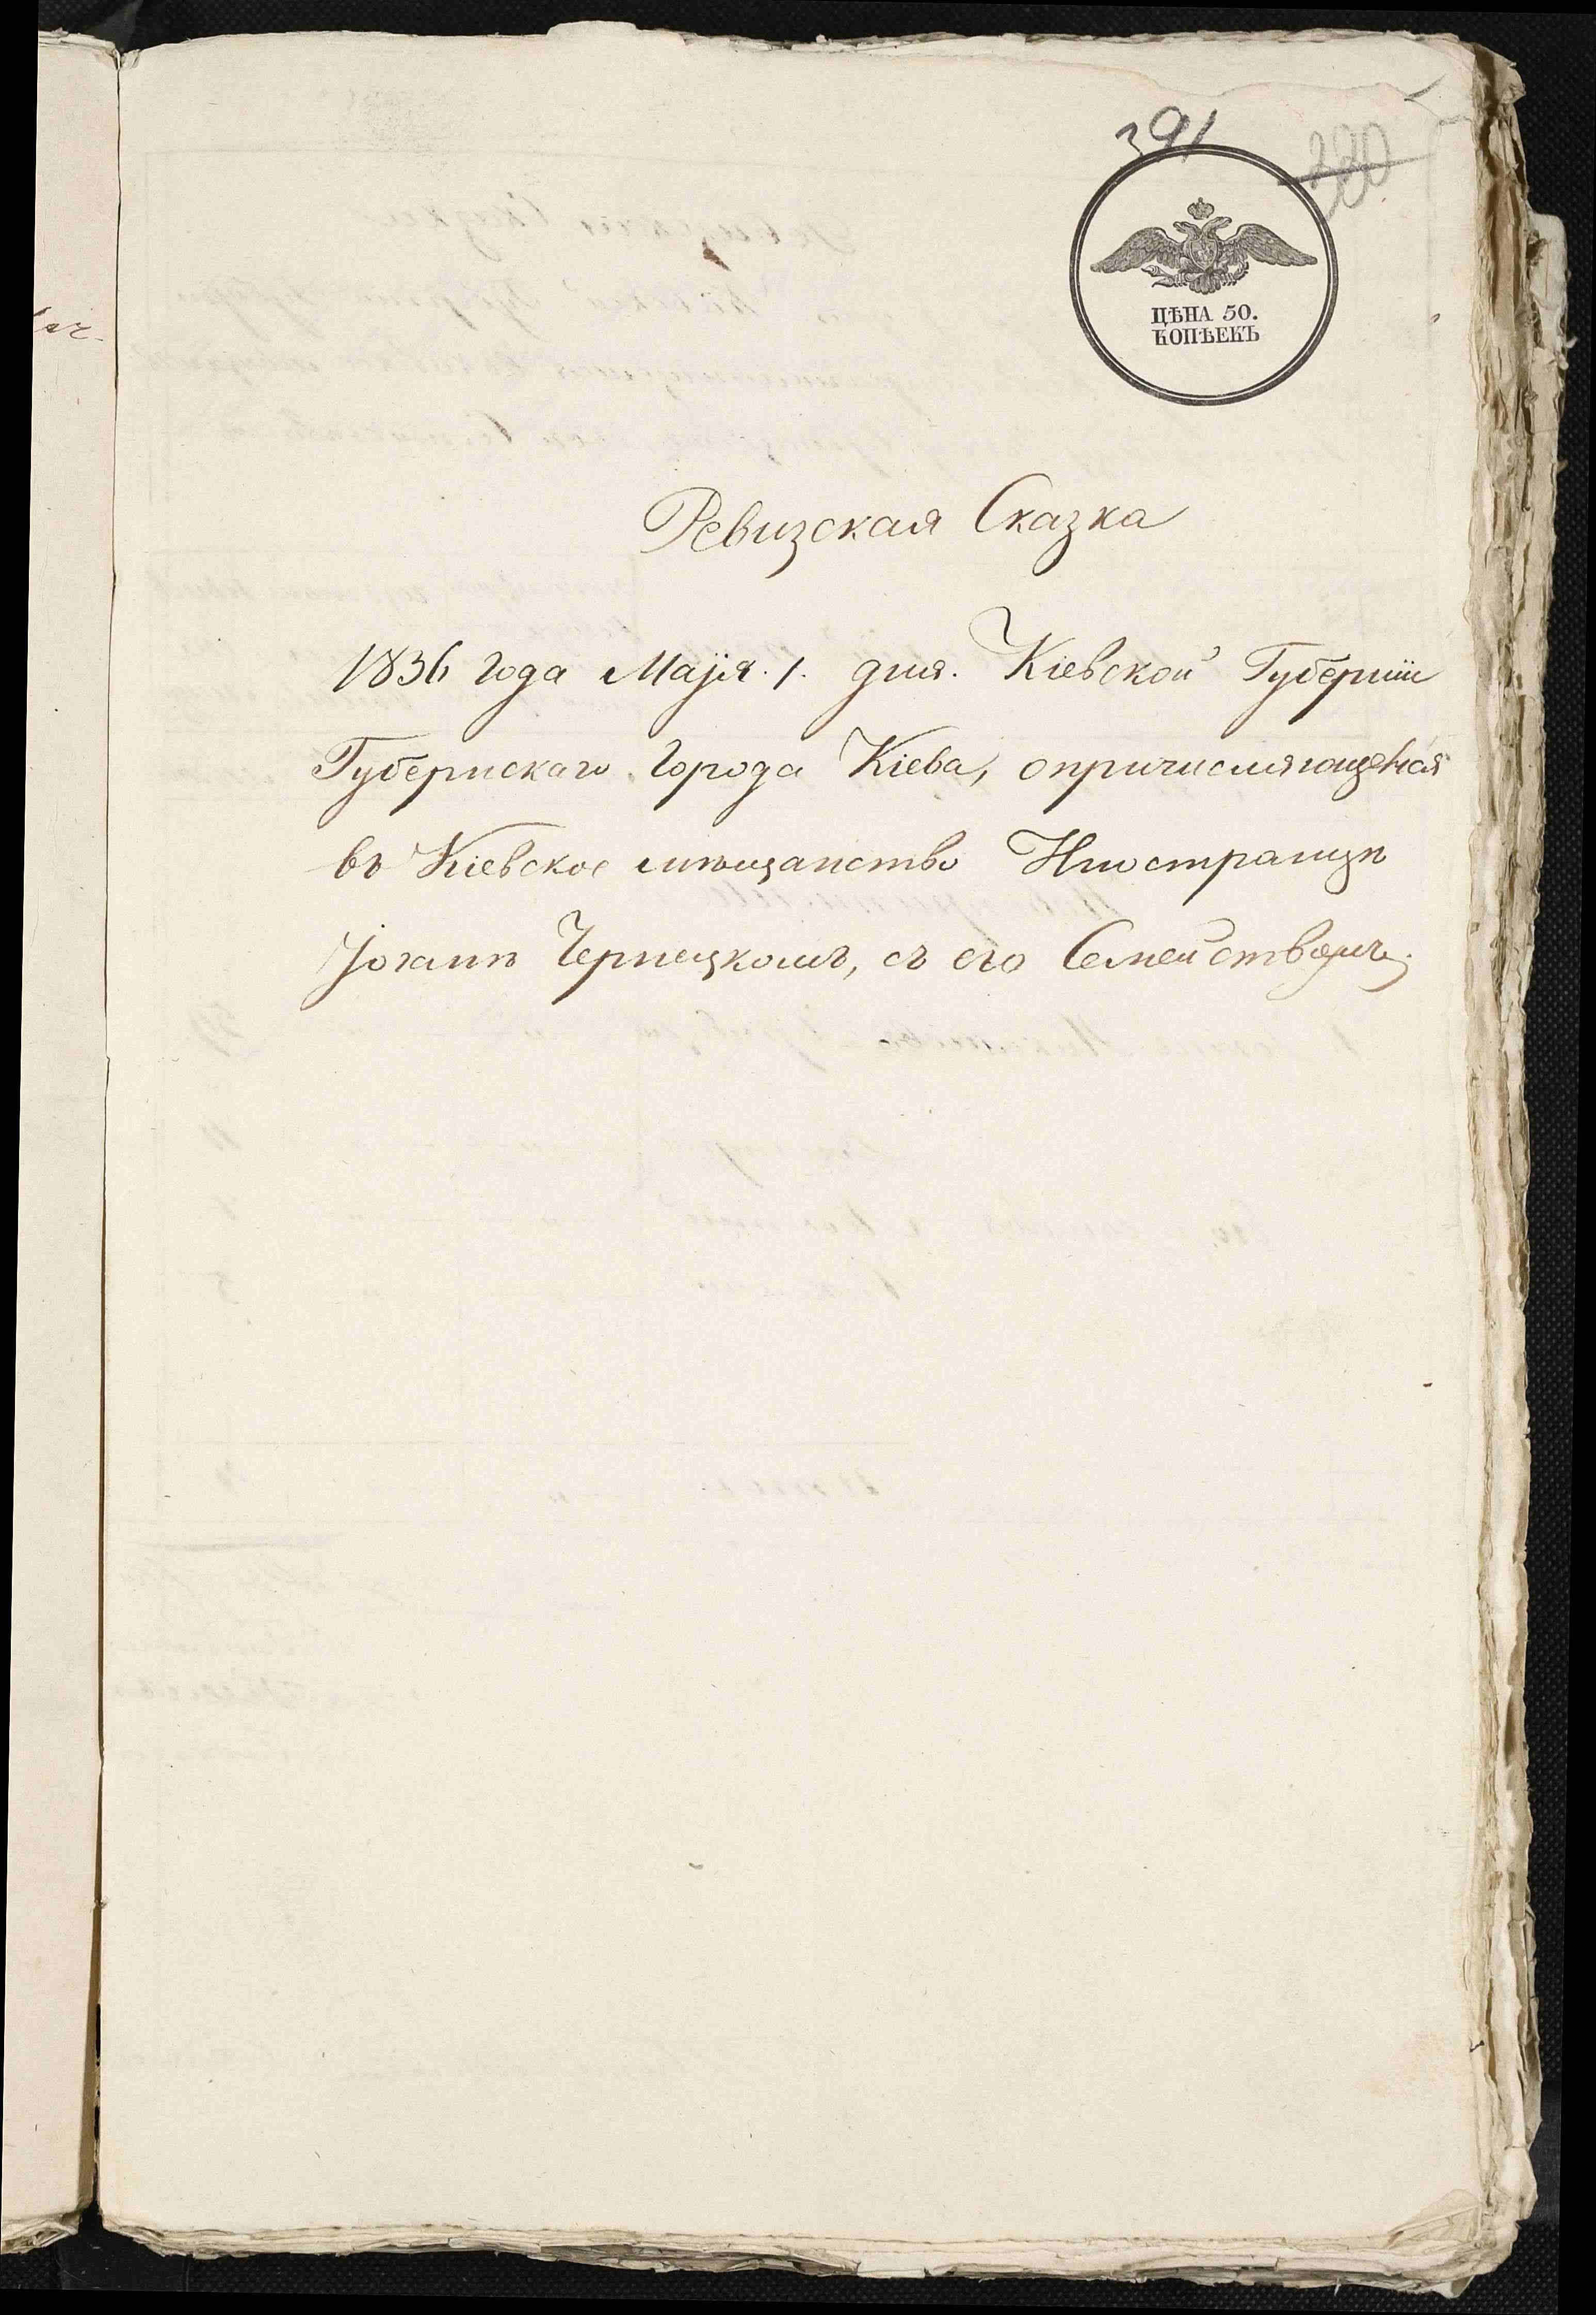 391
220
ЦѢНА 50.
КОПѢЕКЪ
Ревизская Сказка
1836 года Маія. 1. дня. Кіевской Губерніи
Губернскаго Города Кіева, о причисляющемся
въ Кіевское мѣщанство Иностранцѣ
Іоганѣ Чернецкомъ, съ его Семействомъ.